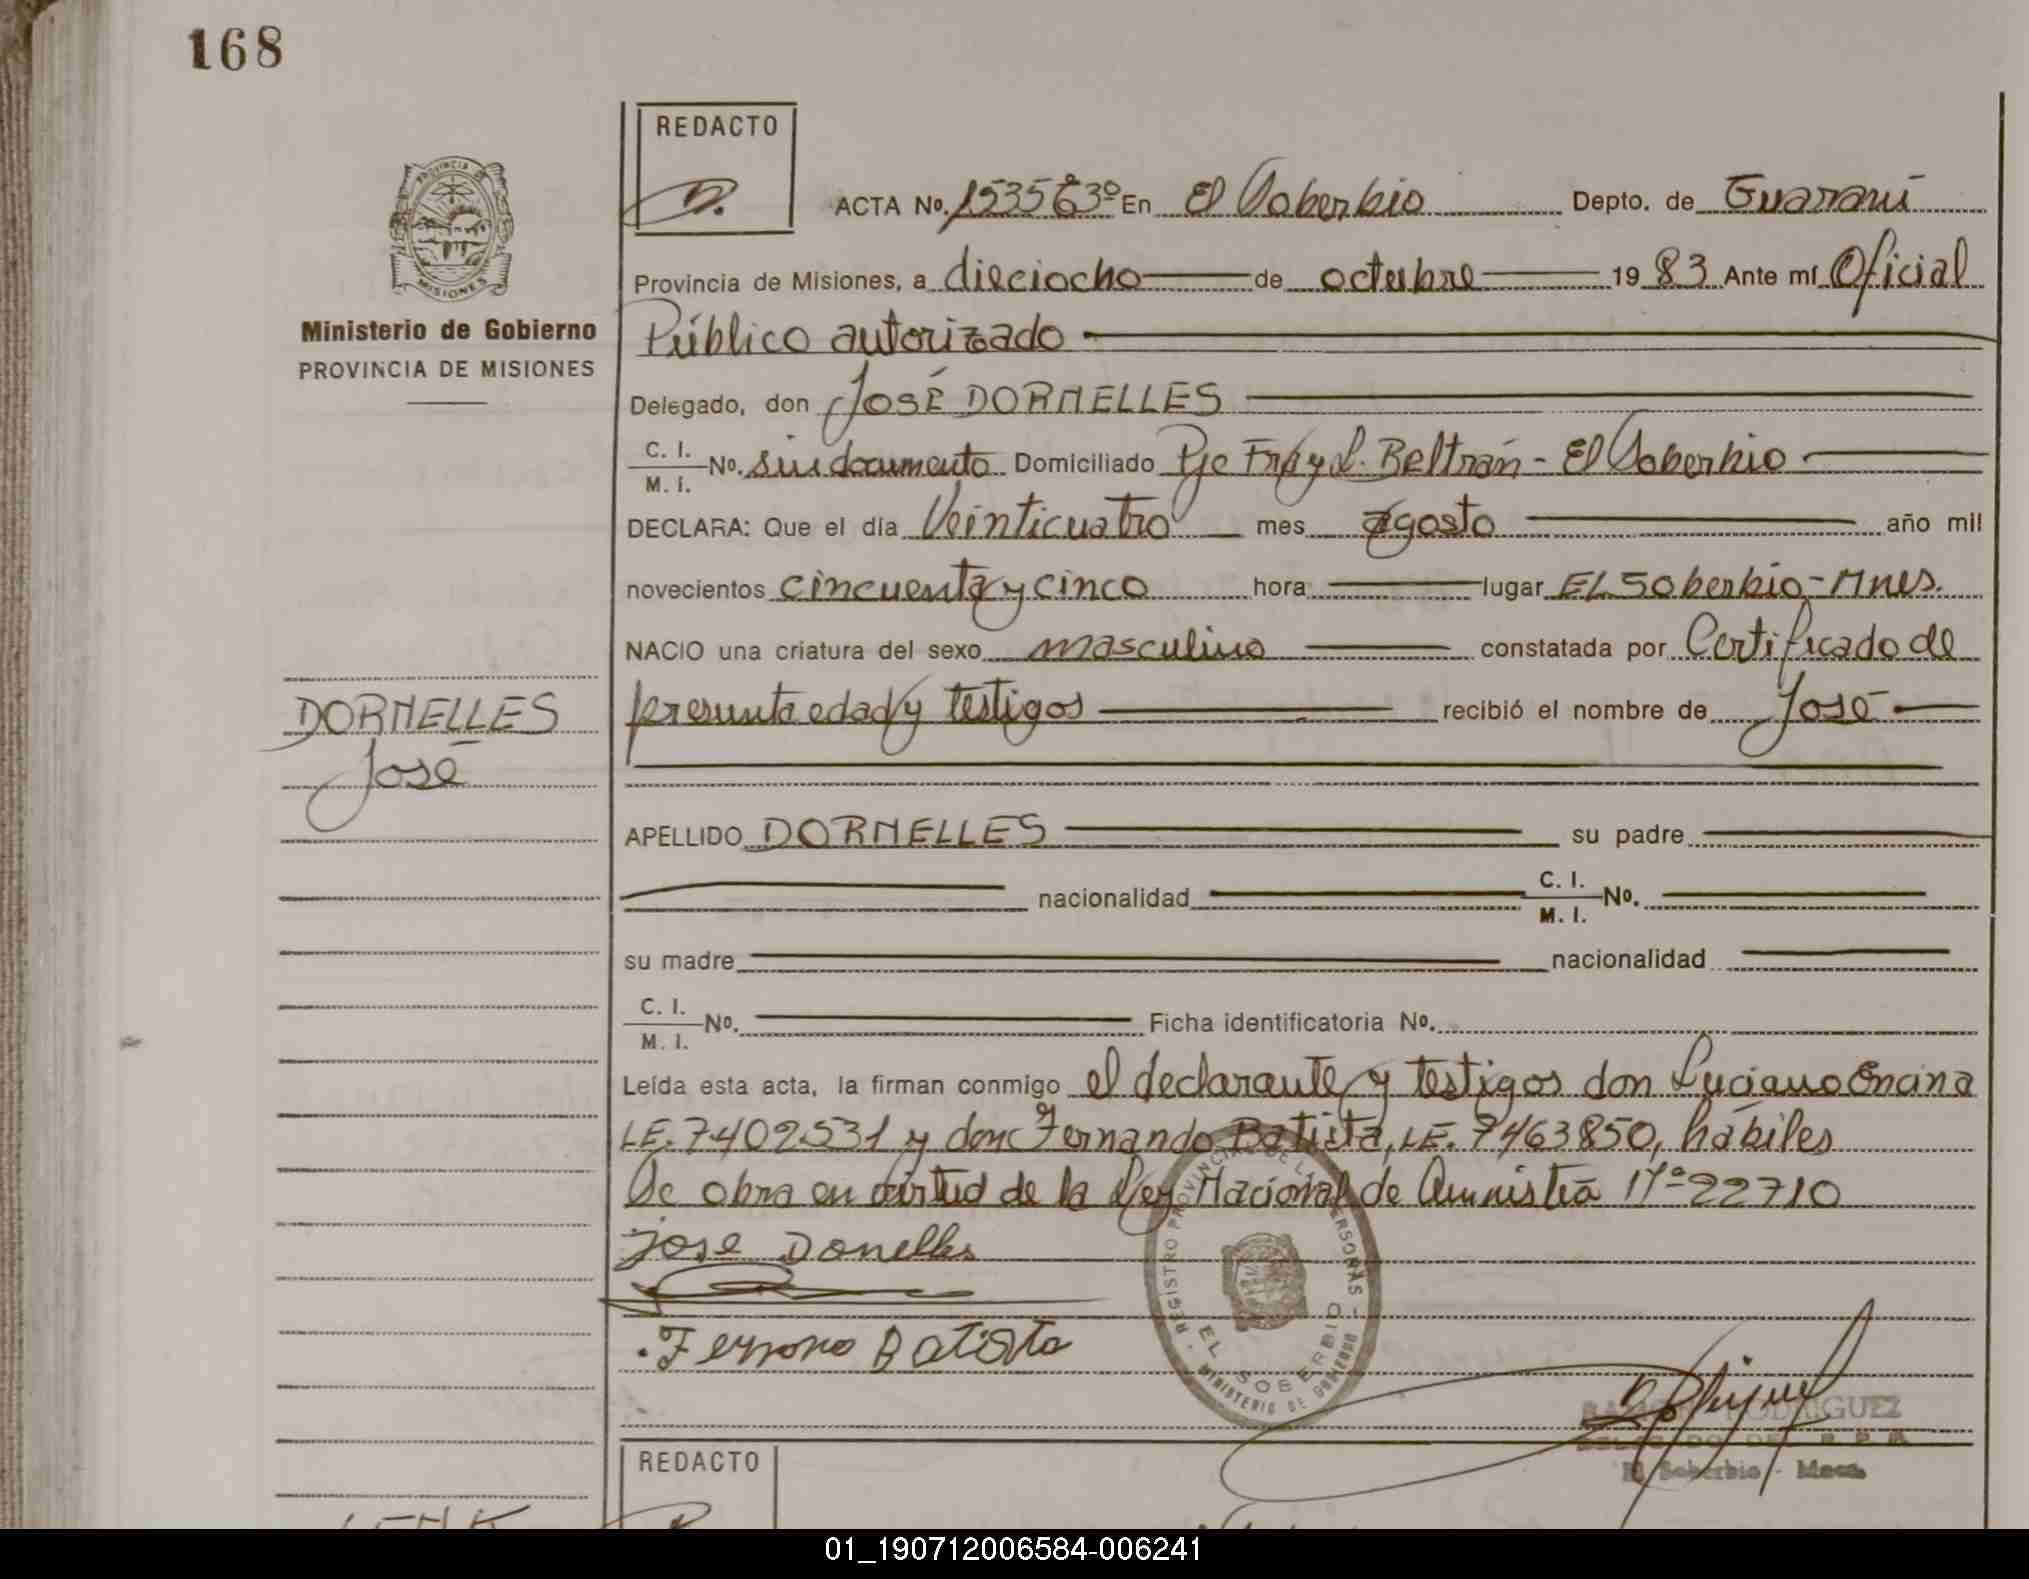 168
REDACTO
PROVINCIA DE
MISIONES
Ministerio de Gobierno
PROVINCIA DE MISIONES
ACTA Nº. En El Soberbio Depto. de Guaraní
Provincia de Misiones, a dieciocho de octubre 1983 Ante mí Oficial
Público autorizado
Delegado, don José DORNELLES
C. I.
M. I. Nº. sin documento Domiciliado Pje Fray L. Beltrán - El Soberbio
DECLARA: Que el día Veinticuatro mes agosto año mil
novecientos cincuenta y cinco hora lugar EL Soberbio - Mnes.
NACIO una criatura del sexo masculino constatada por Certificado de
presunta edad y testigos recibió el nombre de José
DORNELLES
José
APELLIDO DORNELLES su padre
nacionalidad C. I.
M. I. Nº.
su madre nacionalidad
C. I.
M. I. Nº. Ficha identificatoria Nº.
Leída esta acta, la firman conmigo el declarante y testigos don Luciano Encina
LE. 7402531 y don Fernando Batista, LE. 7463850, hábiles
Se obra en virtud de la Ley Nacional de Amnistía Nº 22710
José Donelles
Batista
REGISTRO PROVINCIAL DE LAS PERSONAS - MINISTERIO DE GOBIERNO
EL SOBERBIO
RODRIGUEZ
El Soberbio - Mnes.
REDACTO
01_190712006584-006241